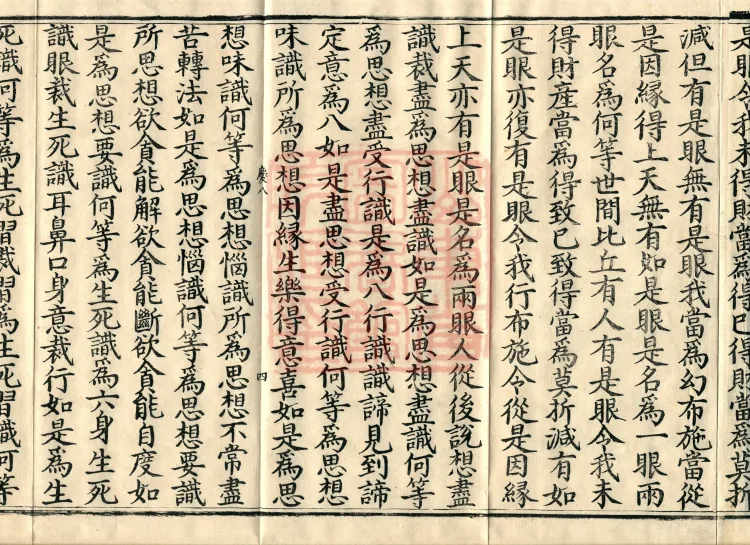 是眼令我未得財當爲得已得財當爲莫折
減但有是眼無有是眼我當爲幻布施當從
是因緣得上天無有如是眼是名爲一眼兩
眼名爲何等世間比丘有人有是眼令我未
得財產當爲得致已致得當爲莫折減有如
是眼亦復有是眼令我行布施令從是因緣
上天亦有是眼是名爲兩眼人從後說想盡
識裁盡爲思想盡識如是爲思想盡識何等
爲思想盡受行識是爲八行識識諦見到諦
定意爲八如是盡思想受行識何等爲思想
味識所爲思想因緣生樂得意喜如是爲思
慶八 四
想味識何等爲思想惱識所爲思想不常盡
苦轉法如是爲思想惱識何等爲思想要識
所思想欲貪能解欲貪能斷欲貪能自度如
是爲思想要識何等爲生死識爲六身生死
識眼裁生死識耳鼻口身意裁行如是爲生
死識何等爲生死習裁習爲生死習識何等